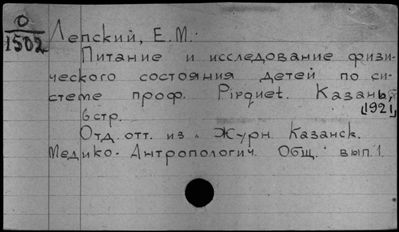 О
1502
Лепский, Е.М.
Питание и исследование физи-
ческого состояния детей по си-
стеме проф. Pirquet. Казань,
6 стр. [1921]
Отд. отт. из „ Журн. Казанск.
Медико-Антропологич. Общ." вып. 1.